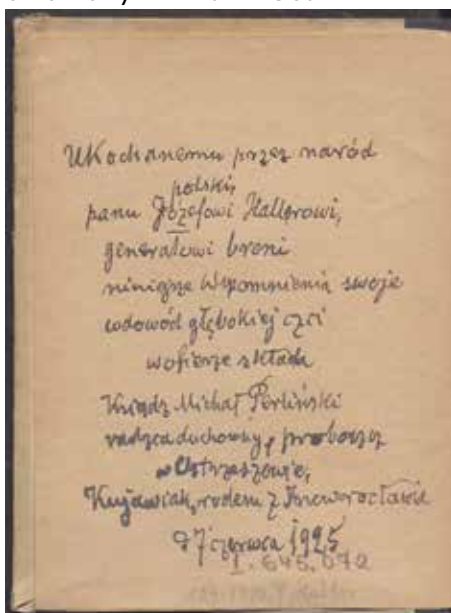 Ukochanemu przez naród
polski,
panu Józefowi Hallerowi,
generałowi broni
niniejsze Wspomnienia swoje
w dowód głębokiej czci
w ofierze składa
Ksiądz Michał Perliński
radzca duchowny, proboszcz
w Ostrzeszowie,
Kujawiak, rodem z Inowrocławia
d 7 czerwca 1925
I. 645.672